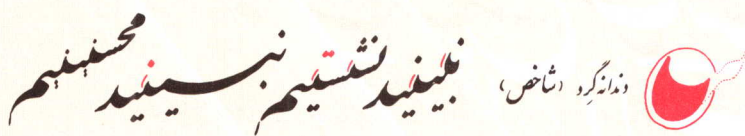 دندانه گرد (شاخص) نبینید نشستیم نبینید محسنینیم